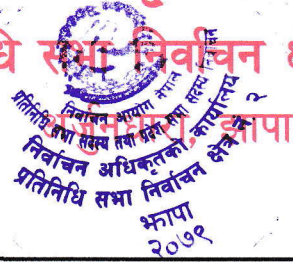 धि सभा निर्वाचन क्षे
अर्जुनधारा, झापा
निर्वाचन आयोग नेपाल
प्रतिनिधि सभा सदस्य तथा प्रदेश सभा सदस्य निर्वाचन
निर्वाचन अधिकृतको कार्यालय
प्रतिनिधि सभा निर्वाचन क्षेत्र नं. २
झापा
२०७९